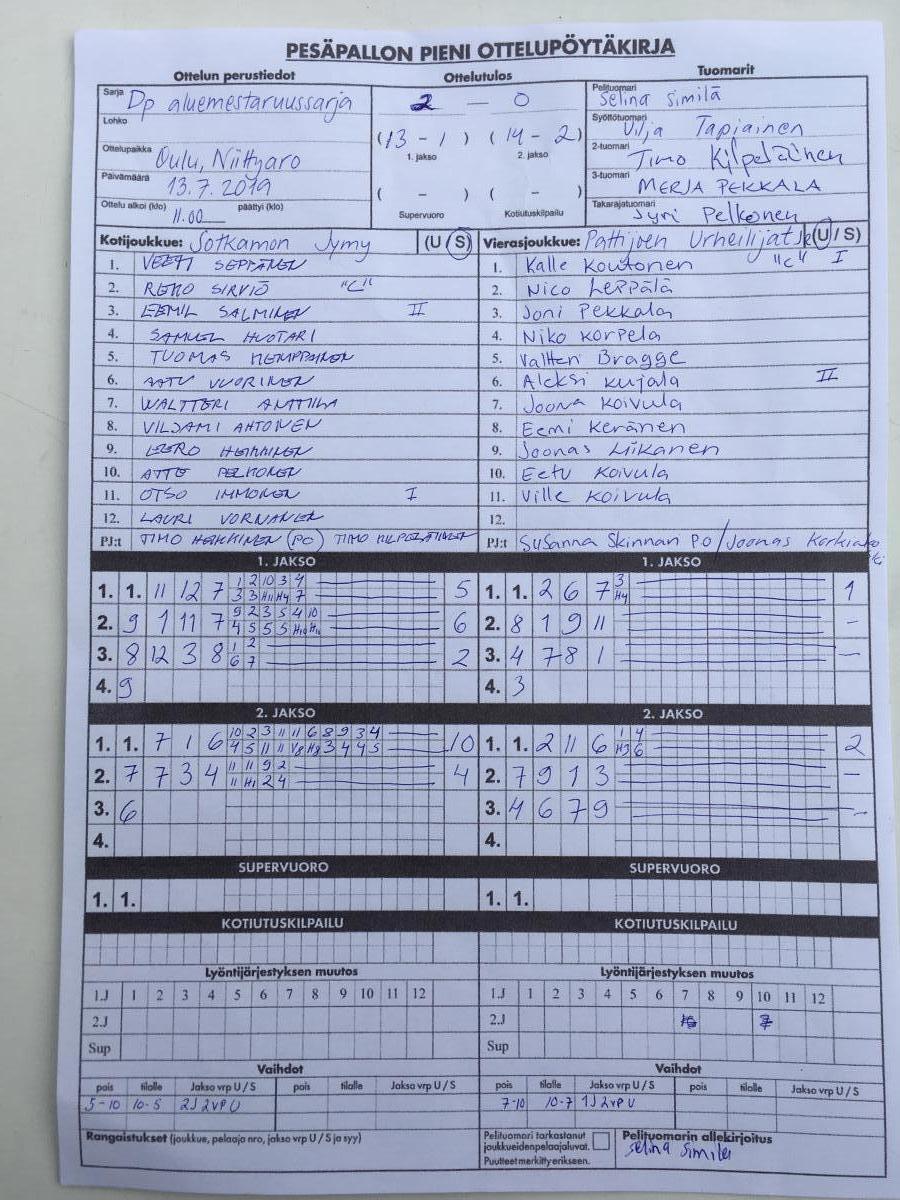 PESÄPALLON PIENI OTTELUPÖYTÄKIRJA
Ottelun perustiedot Ottelutulos Tuomarit
Sarja Dp aluemestaruussarja 2 — 0 Pelituomari Selina Similä
Lohko Syöttötuomari Vilja Tapiainen
(13 - 1) (14 - 2)
1. jakso 2. jakso
Ottelupaikka Oulu, Niittyaro 2-tuomari Timo Kilpeläinen
Päivämäärä 13.7.2019 ( - ) ( - ) 3-tuomari MERJA PEKKALA
Ottelu alkoi (klo) 11.00 päättyi (klo) Supervuoro Kotiutuskilpailu Takarajatuomari Jyri Pelkonen
Kotijoukkue: Sotkamon Jymy (U / S) Vierasjoukkue: Pattijoen Urheilijat (U / S)
1. VEETI SEPPÄNEN 1. Kalle Koutonen "C" I
2. REMO SIRVIÖ "C" 2. Nico Leppälä
3. EEMIL SALMINEN II 3. Joni Pekkala
4. SAMUEL HUOTARI 4. Niko Korpela
5. TUOMAS HEMPPAINEN 5. Valtteri Bragge
6. AATU VUORINEN 6. Aleksi Kujala II
7. WALTTERI ANTTILA 7. Joona Koivula
8. VILJAMI AHTONEN 8. Eemi Keränen
9. EERO HEIKKINEN 9. Joonas Liikanen
10. ATTE PELKONEN 10. Eetu Koivula
11. OTSO IMMONEN I 11. Ville Koivula
12. LAURI VORNANEN 12.
PJ:t TIMO HEIKKINEN (PO) TIMO KILPELÄINEN PJ:t Susanna Skinnari PO / Joonas
1. JAKSO 1. JAKSO
1. 1. 11 12 7 1 2 10 3 4 5 1. 1. 2 6 7 3 1
3 3 H11 H4 7 H4
2. 9 1 11 7 9 2 3 5 4 10 6 2. 8 1 9 11 -
4 5 5 5 H10 H10
3. 8 12 3 8 1 2 2 3. 4 7 8 1 -
6 7
4. 9 4. 3
2. JAKSO 2. JAKSO
1. 1. 7 1 6 10 2 3 11 11 6 8 9 3 4 10 1. 1. 2 11 6 1 4 2
4 5 11 11 V8 H8 3 4 4 5 H3 6
2. 7 7 3 4 11 11 9 2 4 2. 7 9 1 3 -
11 H1 2 4
3. 6 3. 4 6 7 9 -
4. 4.
SUPERVUORO SUPERVUORO
1. 1. 1. 1.
KOTIUTUSKILPAILU KOTIUTUSKILPAILU
Lyöntijärjestyksen muutos Lyöntijärjestyksen muutos
1.J 1 2 3 4 5 6 7 8 9 10 11 12 1.J 1 2 3 4 5 6 7 8 9 10 11 12
2.J 2.J
Sup Sup
Vaihdot Vaihdot
pois tilalle Jakso vrp U / S pois tilalle Jakso vrp U / S pois tilalle Jakso vrp U / S pois tilalle Jakso vrp U / S
5-10 10-5 2J 2vp U 7-10 10-7 1J 2vp U
Rangaistukset (joukkue, pelaaja nro, jakso vrp U / S ja syy) Pelituomari tarkastanut joukkueiden pelaajaluvat. Pelituomarin allekirjoitus
Puutteet merkitty erikseen. Selina Similä